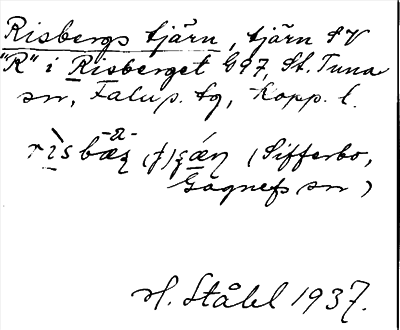 Risbergs tjärn, tjärn SV
"R" i Risberget G97, St. Tuna
sn, Falu s. tg, Kopp. l.
(Sifferbo,
Gagnefs sn)
H. Ståhl 1937.